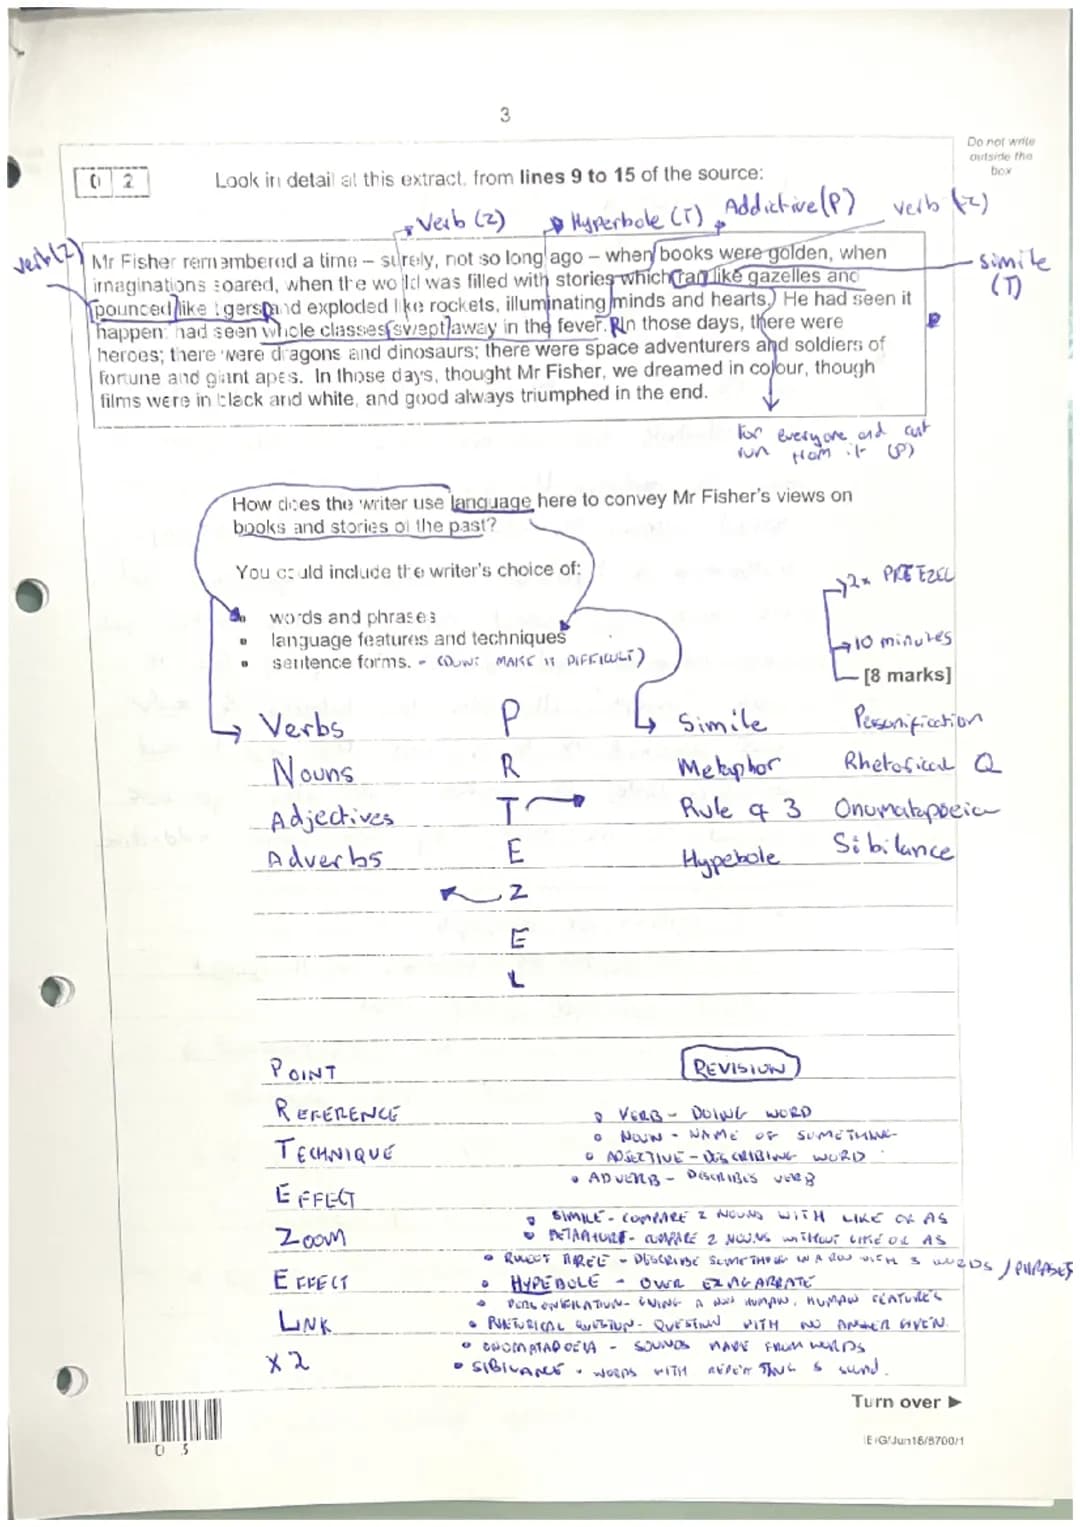 3
Do not write
outside the
box
0 2
Look in detail at this extract, from lines 9 to 15 of the source:
Verb (Z)
Hyperbole (T)
Addictive (P)
verb (Z)
verb (Z)
simile
(T)
Mr Fisher remembered a time – surely, not so long ago – when books were golden, when
imaginations soared, when the world was filled with stories which ran like gazelles and
pounced like tigers and exploded like rockets, illuminating minds and hearts. He had seen it
happen: had seen whole classes swept away in the fever. In those days, there were
heroes; there were dragons and dinosaurs; there were space adventurers and soldiers of
fortune and giant apes. In those days, thought Mr Fisher, we dreamed in colour, though
films were in black and white, and good always triumphed in the end.
for everyone and cant
run from it (P)
How does the writer use language here to convey Mr Fisher's views on
books and stories of the past?
You could include the writer's choice of:
• words and phrases
• language features and techniques
• sentence forms. - (DONT MAKE IT DIFFICULT)
2x PRETEZEL
10 minutes
[8 marks]
Verbs P Simile Personification
Nouns R Metaphor Rhetorical Q
Adjectives T Rule of 3 Onomatapoeia
Adverbs E Hypebole Sibilance
Z
E
L
POINT
REVISION
REFERENCE
• VERB - DOING WORD
• NOUN - NAME OF SOMETHING
TECHNIQUE
• ADJECTIVE - DESCRIBING WORD
• ADVERB - DESCRIBES VERB
EFFECT
• SIMILE - COMPARE 2 NOUNS WITH LIKE OR AS
ZOOM
• METAPHORE - COMPARE 2 NOUNS WITHOUT LIKE OR AS
• RULE OF THREE - DESCRIBE SOMETHING IN A ROW WITH 3 WORDS / PHRASES
EFFECT
• HYPEBOLE - OVER EXAGARRATE
• PERSONIFICATION - GIVING A NON HUMAN, HUMAN FEATURES
LINK
• RHETORICAL QUESTION - QUESTION WITH NO ANSWER GIVEN.
• ONOMATAPOEIA - SOUNDS MADE FROM WORDS
x2
• SIBILANCE - WORDS WITH REPEATING S sound.
Turn over ►
0 3
IB/G/Jun18/8700/1